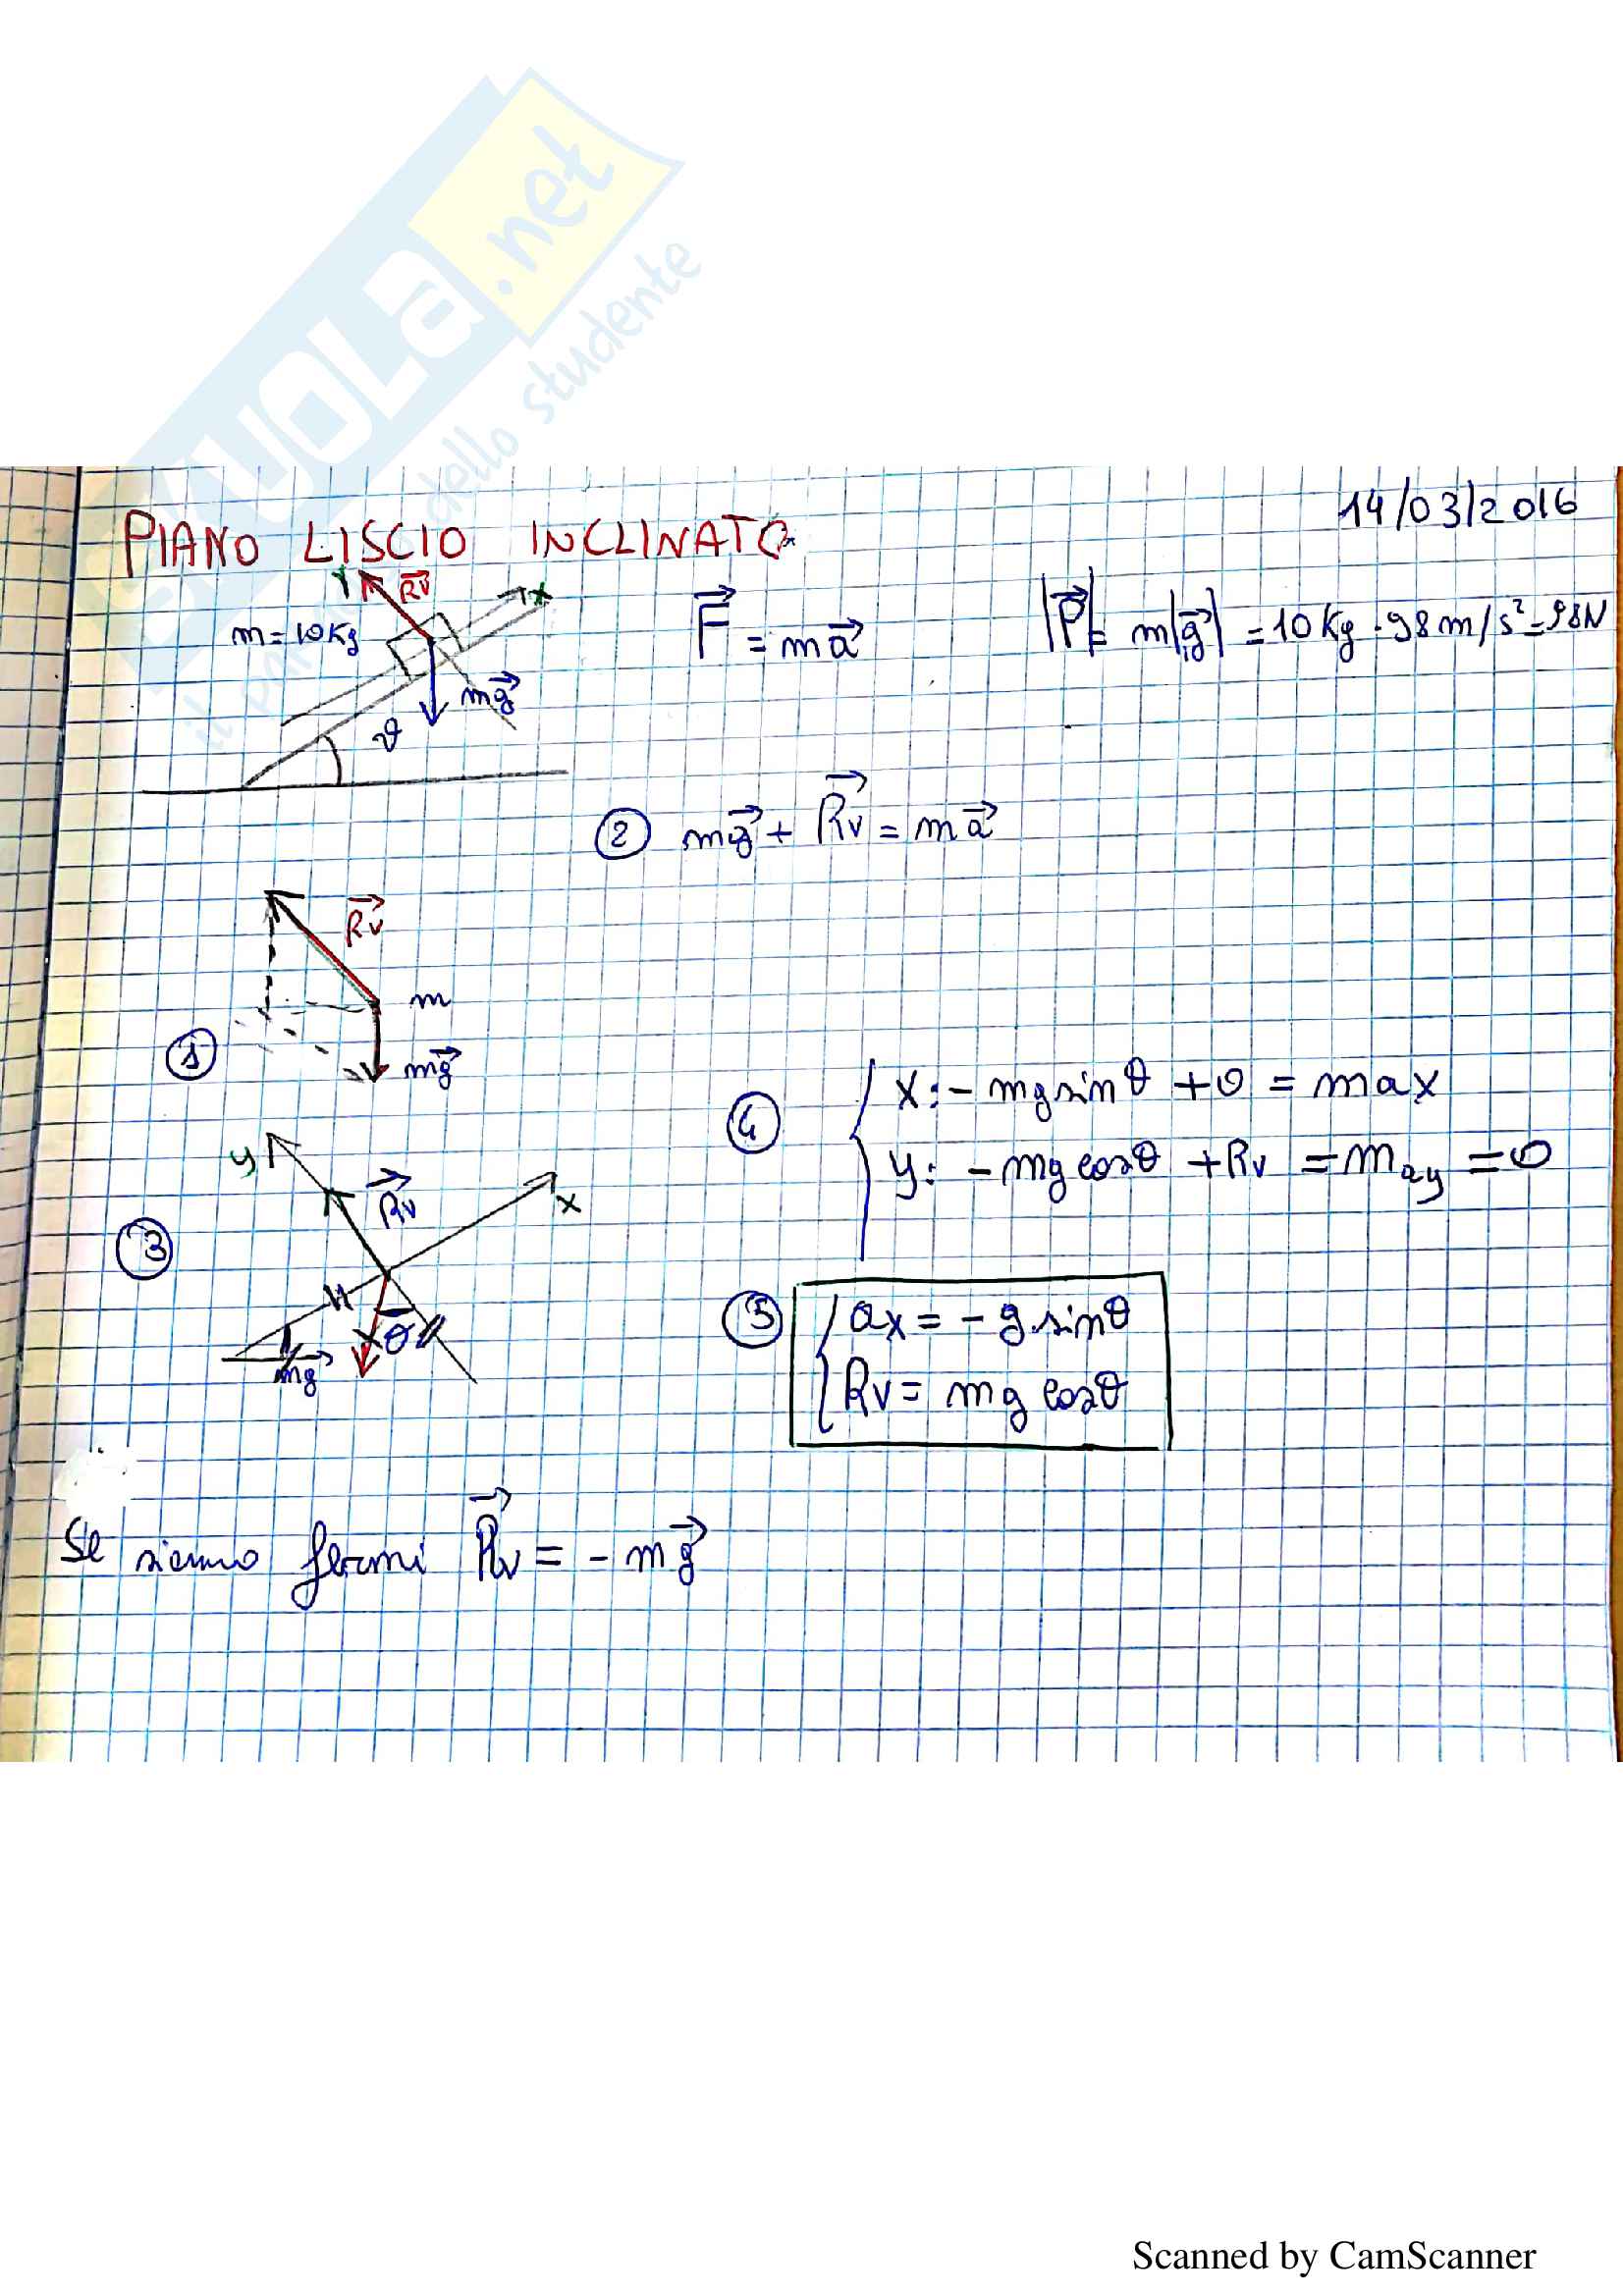 SKUOLA.net
il portale dello studente
14/03/2016
PIANO LISCIO INCLINATO
Y Rv x
m = 10 Kg
mg
ϑ
F = ma
|P| = m|g| = 10 Kg · 9,8 m/s² = 98 N
② mg + Rv = ma
Rv
m
① mg
④ x: - mg sin θ + 0 = max
y: - mg cos θ + Rv = may = 0
y
Rv
x
③
θ
mg
⑤ ax = - g sin θ
Rv = mg cos θ
Se siamo fermi Rv = - mg
Scanned by CamScanner